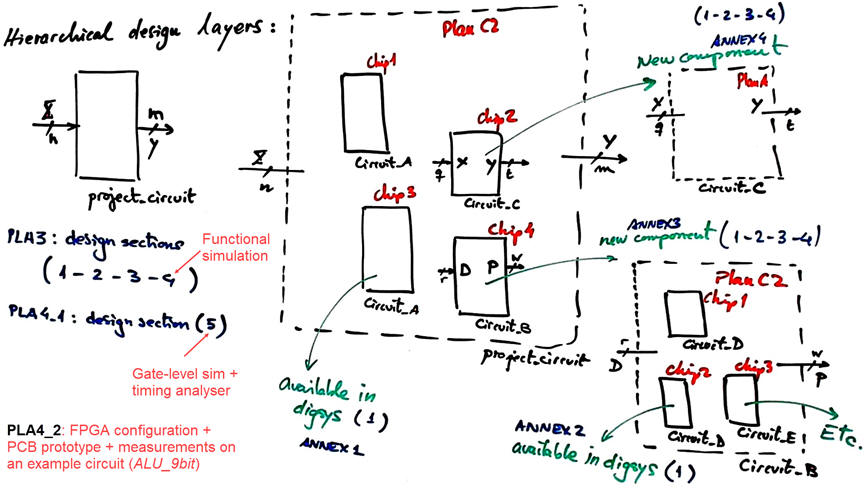 Hierarchical design layers:
Z
n
m
y
project_circuit
PLA3: design sections
(1-2-3-4)
Functional
simulation
PLA4_1: design section (5)
Gate-level sim +
timing analyser
PLA4_2: FPGA configuration +
PCB prototype + measurements on
an example circuit (ALU_9bit)
Plan C2
Z
n
Chip1
Circuit_A
Chip2
q
X
Y
t
Circuit_C
Chip3
Circuit_A
Chip4
r
D
P
w
Circuit_B
project_circuit
Y
m
available in
digsys (1)
ANNEX1
(1-2-3-4)
ANNEX4
New component
Plan A
X
q
Y
t
Circuit_C
ANNEX3
new component (1-2-3-4)
Plan C2
Chip1
Circuit_D
r
D
Chip2
Circuit_D
Chip3
Circuit_E
w
P
Etc.
Circuit_B
ANNEX2
available in digsys (1)